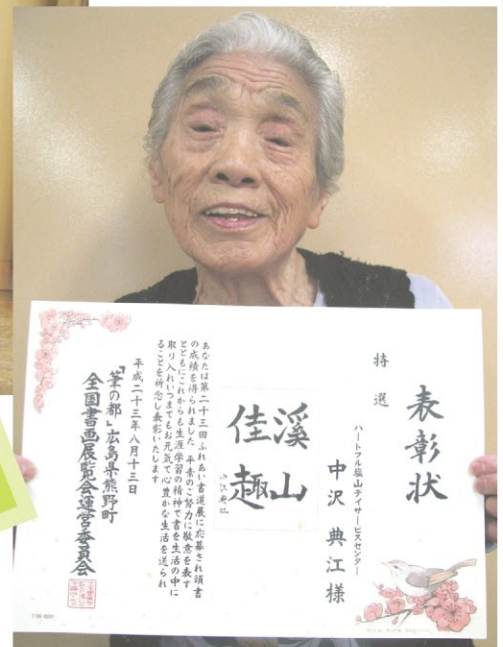 表彰状
特選
ハートフル塩山デイサービスセンター
中沢典江様
溪山
佳趣
あなたは第二十三回ふれあい書道展に応募され頭書
の成績を得られました 平素のご努力に敬意を表す
とともにこれからも生涯学習の精神で書を生活の中に
取り入れいつまでもお元気で心豊かな生活を送られ
ることを祈念し表彰いたします
平成二十三年八月十三日
「筆の都」広島県熊野町
全国書画展覧会運営委員会